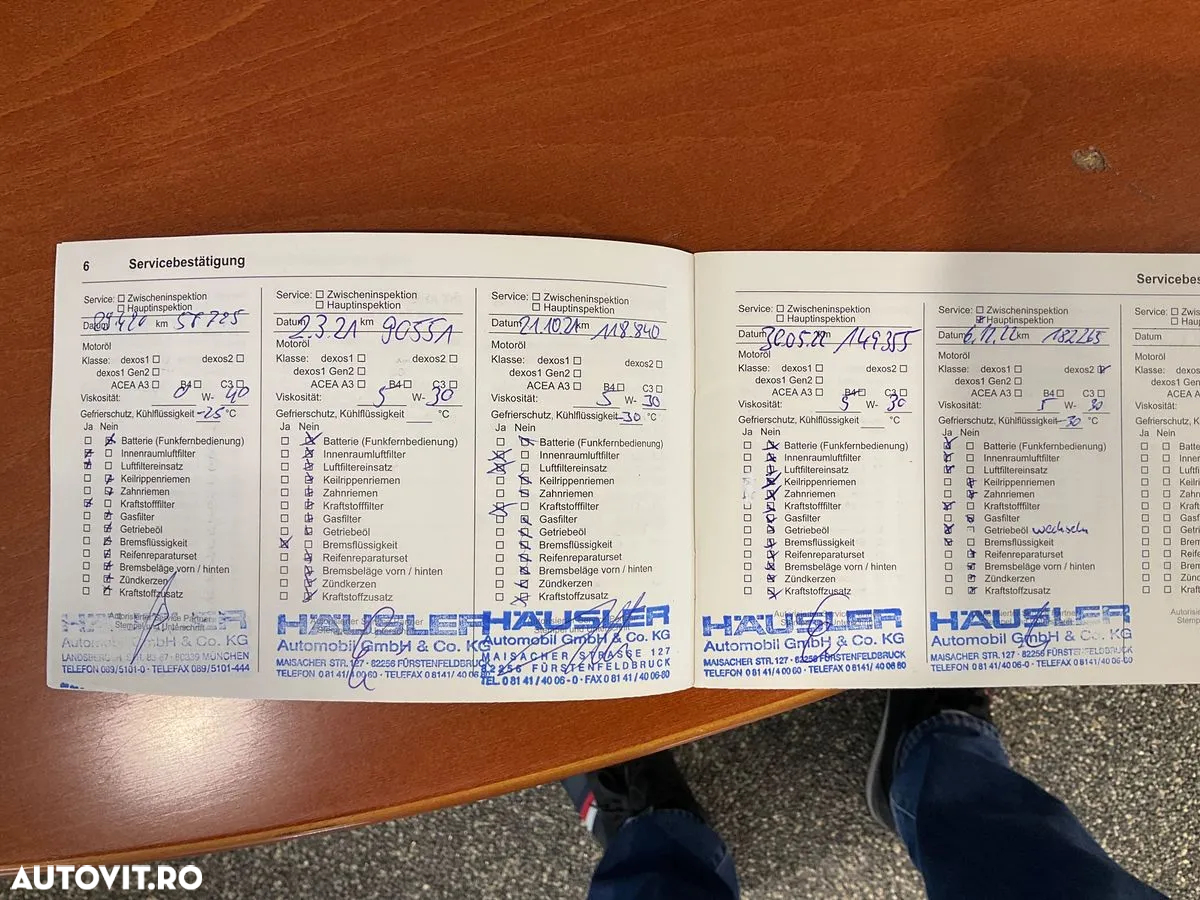 6 Servicebestätigung
Service: Zwischeninspektion
Hauptinspektion
Datum km 57725
Motoröl
Klasse: dexos1 dexos2
dexos1 Gen2
ACEA A3 B4 C3
Viskosität: 0 W- 40
Gefrierschutz, Kühlflüssigkeit -25 °C
Ja Nein
Batterie (Funkfernbedienung)
Innenraumluftfilter
Luftfiltereinsatz
Keilrippenriemen
Zahnriemen
Kraftstofffilter
Gasfilter
Getriebeöl
Bremsflüssigkeit
Reifenreparaturset
Bremsbeläge vorn / hinten
Zündkerzen
Kraftstoffzusatz
Autorisierter Service Partner
Stempel und Unterschrift
HÄUSLER
Automobil GmbH & Co. KG
LANDSBERGER STR. 83-87 · 80339 MÜNCHEN
TELEFON 089/5101-0 · TELEFAX 089/5101-444
Service: Zwischeninspektion
Hauptinspektion
Datum 2.3.21 km 90551
Motoröl
Klasse: dexos1 dexos2
dexos1 Gen2
ACEA A3 B4 C3
Viskosität: 5 W- 30
Gefrierschutz, Kühlflüssigkeit °C
Ja Nein
Batterie (Funkfernbedienung)
Innenraumluftfilter
Luftfiltereinsatz
Keilrippenriemen
Zahnriemen
Kraftstofffilter
Gasfilter
Getriebeöl
Bremsflüssigkeit
Reifenreparaturset
Bremsbeläge vorn / hinten
Zündkerzen
Kraftstoffzusatz
HÄUSLER
Automobil GmbH & Co. KG
MAISACHER STR. 127 · 82256 FÜRSTENFELDBRUCK
TELEFON 0 81 41/4 00 60 · TELEFAX 0 81 41/ 40 06 80
Service: Zwischeninspektion
Hauptinspektion
Datum 21.10.21 km 118.840
Motoröl
Klasse: dexos1 dexos2
dexos1 Gen2
ACEA A3 B4 C3
Viskosität: 5 W- 30
Gefrierschutz, Kühlflüssigkeit -30 °C
Ja Nein
Batterie (Funkfernbedienung)
Innenraumluftfilter
Luftfiltereinsatz
Keilrippenriemen
Zahnriemen
Kraftstofffilter
Gasfilter
Getriebeöl
Bremsflüssigkeit
Reifenreparaturset
Bremsbeläge vorn / hinten
Zündkerzen
Kraftstoffzusatz
HÄUSLER
Automobil GmbH & Co. KG
MAISACHER STRASSE 127
82256 FÜRSTENFELDBRUCK
TEL. 0 81 41 / 40 06 - 0 · FAX 0 81 41 / 40 06-80
Servicebes
Service: Zwischeninspektion
Hauptinspektion
Datum 30.05.22 km 149355
Motoröl
Klasse: dexos1 dexos2
dexos1 Gen2
ACEA A3 B4 C3
Viskosität: 5 W- 30
Gefrierschutz, Kühlflüssigkeit °C
Ja Nein
Batterie (Funkfernbedienung)
Innenraumluftfilter
Luftfiltereinsatz
Keilrippenriemen
Zahnriemen
Kraftstofffilter
Gasfilter
Getriebeöl
Bremsflüssigkeit
Reifenreparaturset
Bremsbeläge vorn / hinten
Zündkerzen
Kraftstoffzusatz
HÄUSLER
Automobil GmbH & Co. KG
MAISACHER STR. 127 · 82256 FÜRSTENFELDBRUCK
TELEFON 0 81 41/4 00 60 · TELEFAX 0 81 41/ 40 06 80
Service: Zwischeninspektion
Hauptinspektion
Datum 6.12.22 km 182265
Motoröl
Klasse: dexos1 dexos2
dexos1 Gen2
ACEA A3 B4 C3
Viskosität: 5 W- 30
Gefrierschutz, Kühlflüssigkeit -30 °C
Ja Nein
Batterie (Funkfernbedienung)
Innenraumluftfilter
Luftfiltereinsatz
Keilrippenriemen
Zahnriemen
Kraftstofffilter
Gasfilter
Getriebeöl wechseln
Bremsflüssigkeit
Reifenreparaturset
Bremsbeläge vorn / hinten
Zündkerzen
Kraftstoffzusatz
HÄUSLER
Automobil GmbH & Co. KG
MAISACHER STR. 127 · 82256 FÜRSTENFELDBRUCK
TELEFON 0 81 41/4 00 60 · TELEFAX 0 81 41/ 40 06 80
Service: Zwi
Hau
Datum
Motoröl
Klasse: dexos
dexos1 Ge
ACEA
Viskosität:
Gefrierschutz, Kü
Ja Nein
Batter
Innen
Luftfil
Keilri
Zahn
Kraft
Gasf
Getri
Brem
Reife
Brem
Zünd
Kraft
Autoris
Ste
AUTOVIT.RO